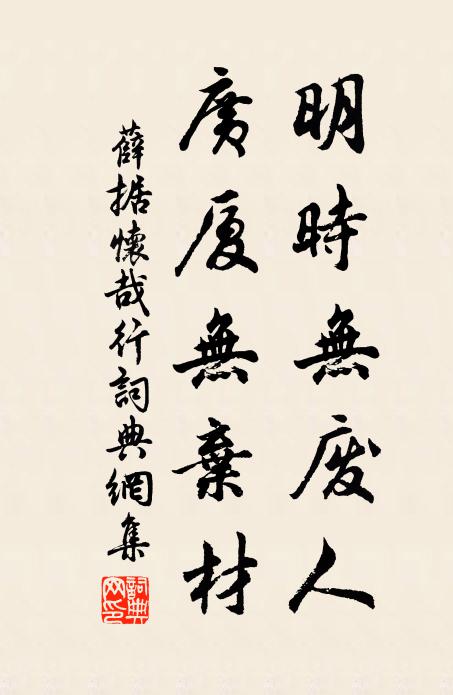 明時無廢人
廣厦無棄材
薛据懷哉行詞典網集
詞典網印